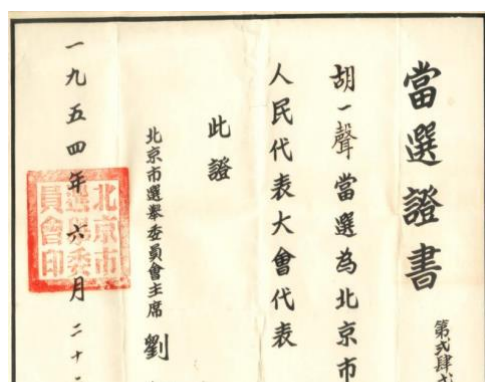 當選證書
第弍肆
胡一聲當選為北京市
人民代表大會代表
此證
北京市選舉委員會主席 劉
一九五四年六月二十
北京市
選舉委
員會印